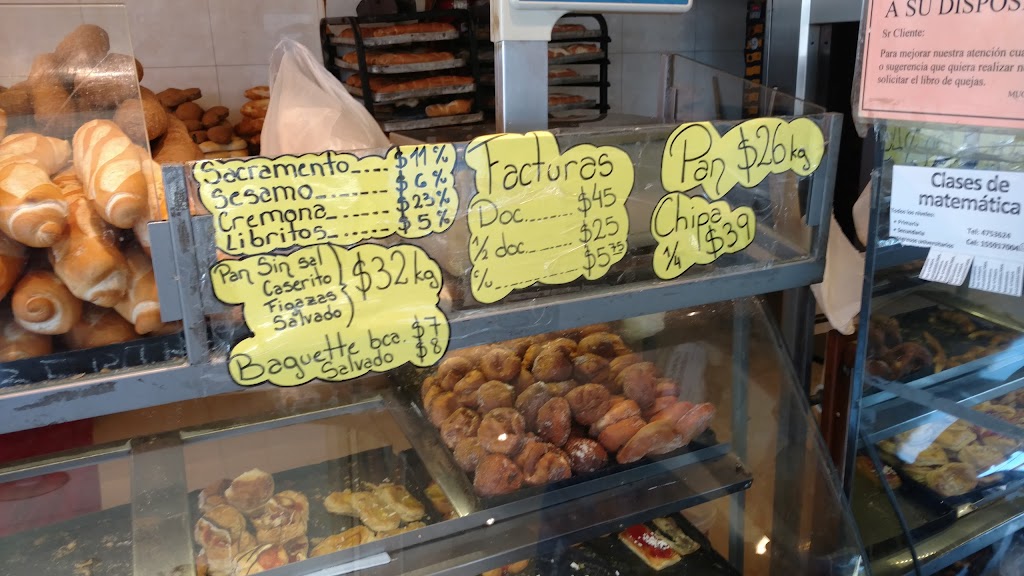 Sacramento $11 %
Sesamo $6 %
Cremona $23 %
Libritos $5 %
Pan Sin sal
Caserito
Figazas
Salvado
$32 kg
Baguette bce. $7
Salvado $8
Facturas
Doc $45
1/2 doc $25
c/ $5 75
Pan $26 kg
Chipa
1/4 $39
A SU DISPOS
Sr Cliente:
Para mejorar nuestra atención cu
o sugerencia que quiera realizar n
solicitar el libro de quejas.
Clases de
matemática
Todos los niveles:
• Primaria
• Secundaria
Tel: 4753624